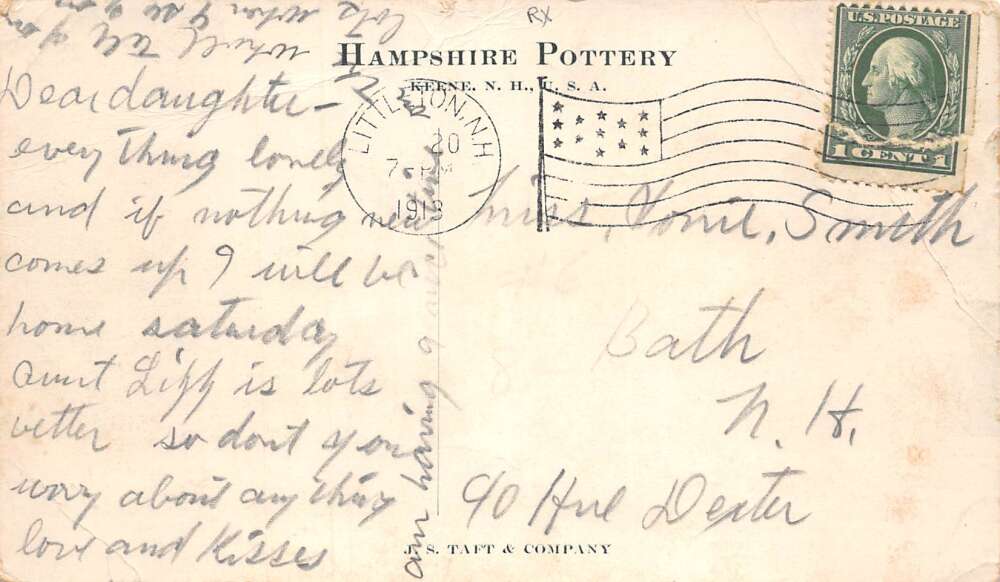 RX
HAMPSHIRE POTTERY
KEENE, N. H., U. S. A.
LITTLETON, N.H.
20
7 - PM
1918
U.S. POSTAGE
1 CENT 1
Dear daughter -
every thing lonely
and if nothing new
comes up I will be
home saturday
aunt Lizz is lots
better so dont you
worry about any thing
love and Kisses
am having a
Miss, Smith
Bath
N. H.
Dexter
J. S. TAFT & COMPANY